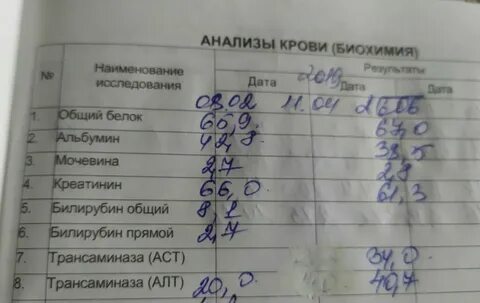 АНАЛИЗЫ КРОВИ (БИОХИМИЯ)
№ Наименование исследования 2019 Результаты
Дата Дата Дата
03.02 11.04 26.06
1. Общий белок 66,9 67,0
2. Альбумин 42,8 38,5
3. Мочевина 2,7 2,8
4. Креатинин 66,0 61,3
5. Билирубин общий 8,1
6. Билирубин прямой 2,7
7. Трансаминаза (АСТ) 34,0
8. Трансаминаза (АЛТ) 20,0 40,7